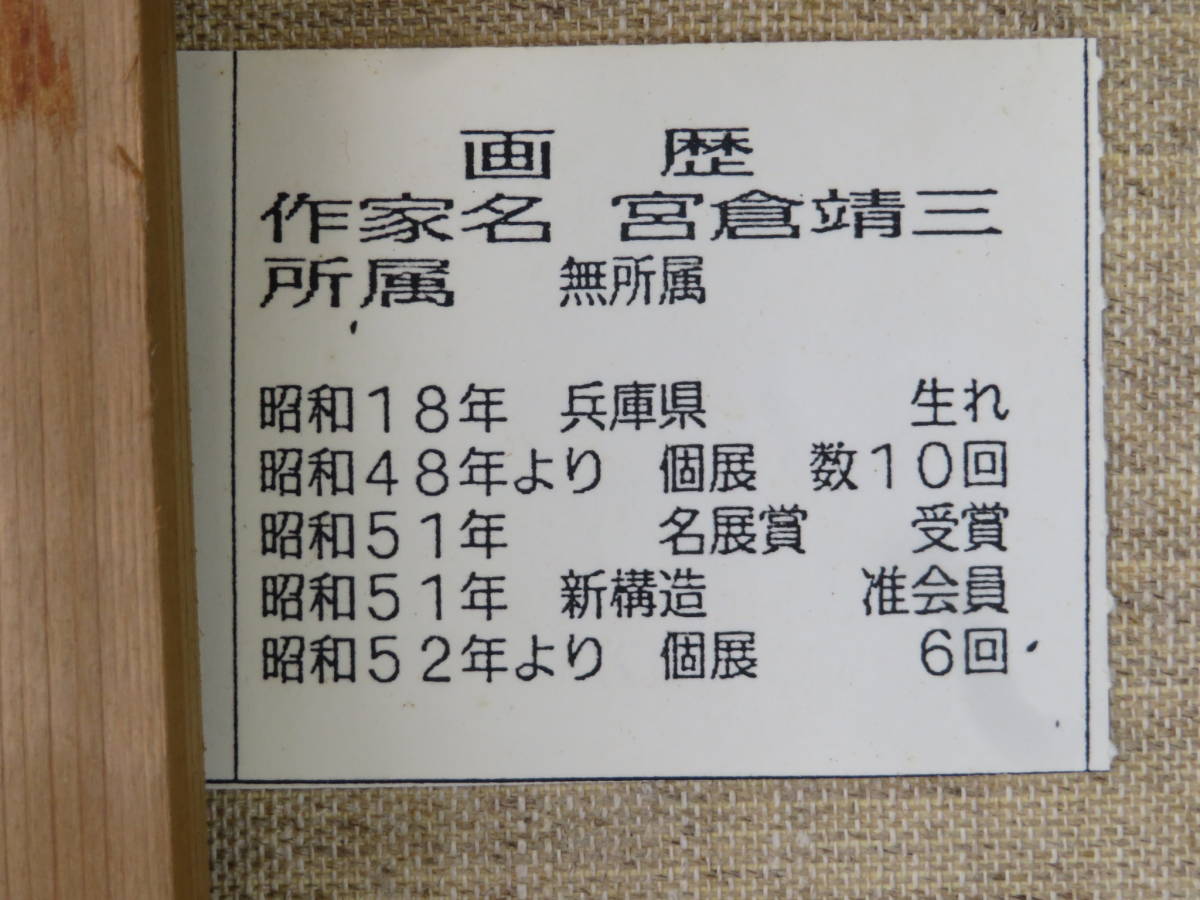 画　歴
作家名　宮倉靖三
所属　　無所属
昭和１８年　兵庫県　　　　生れ
昭和４８年より　個展　数１０回
昭和５１年　　　名展賞　　受賞
昭和５１年　新構造　　　准会員
昭和５２年より　個展　　　６回